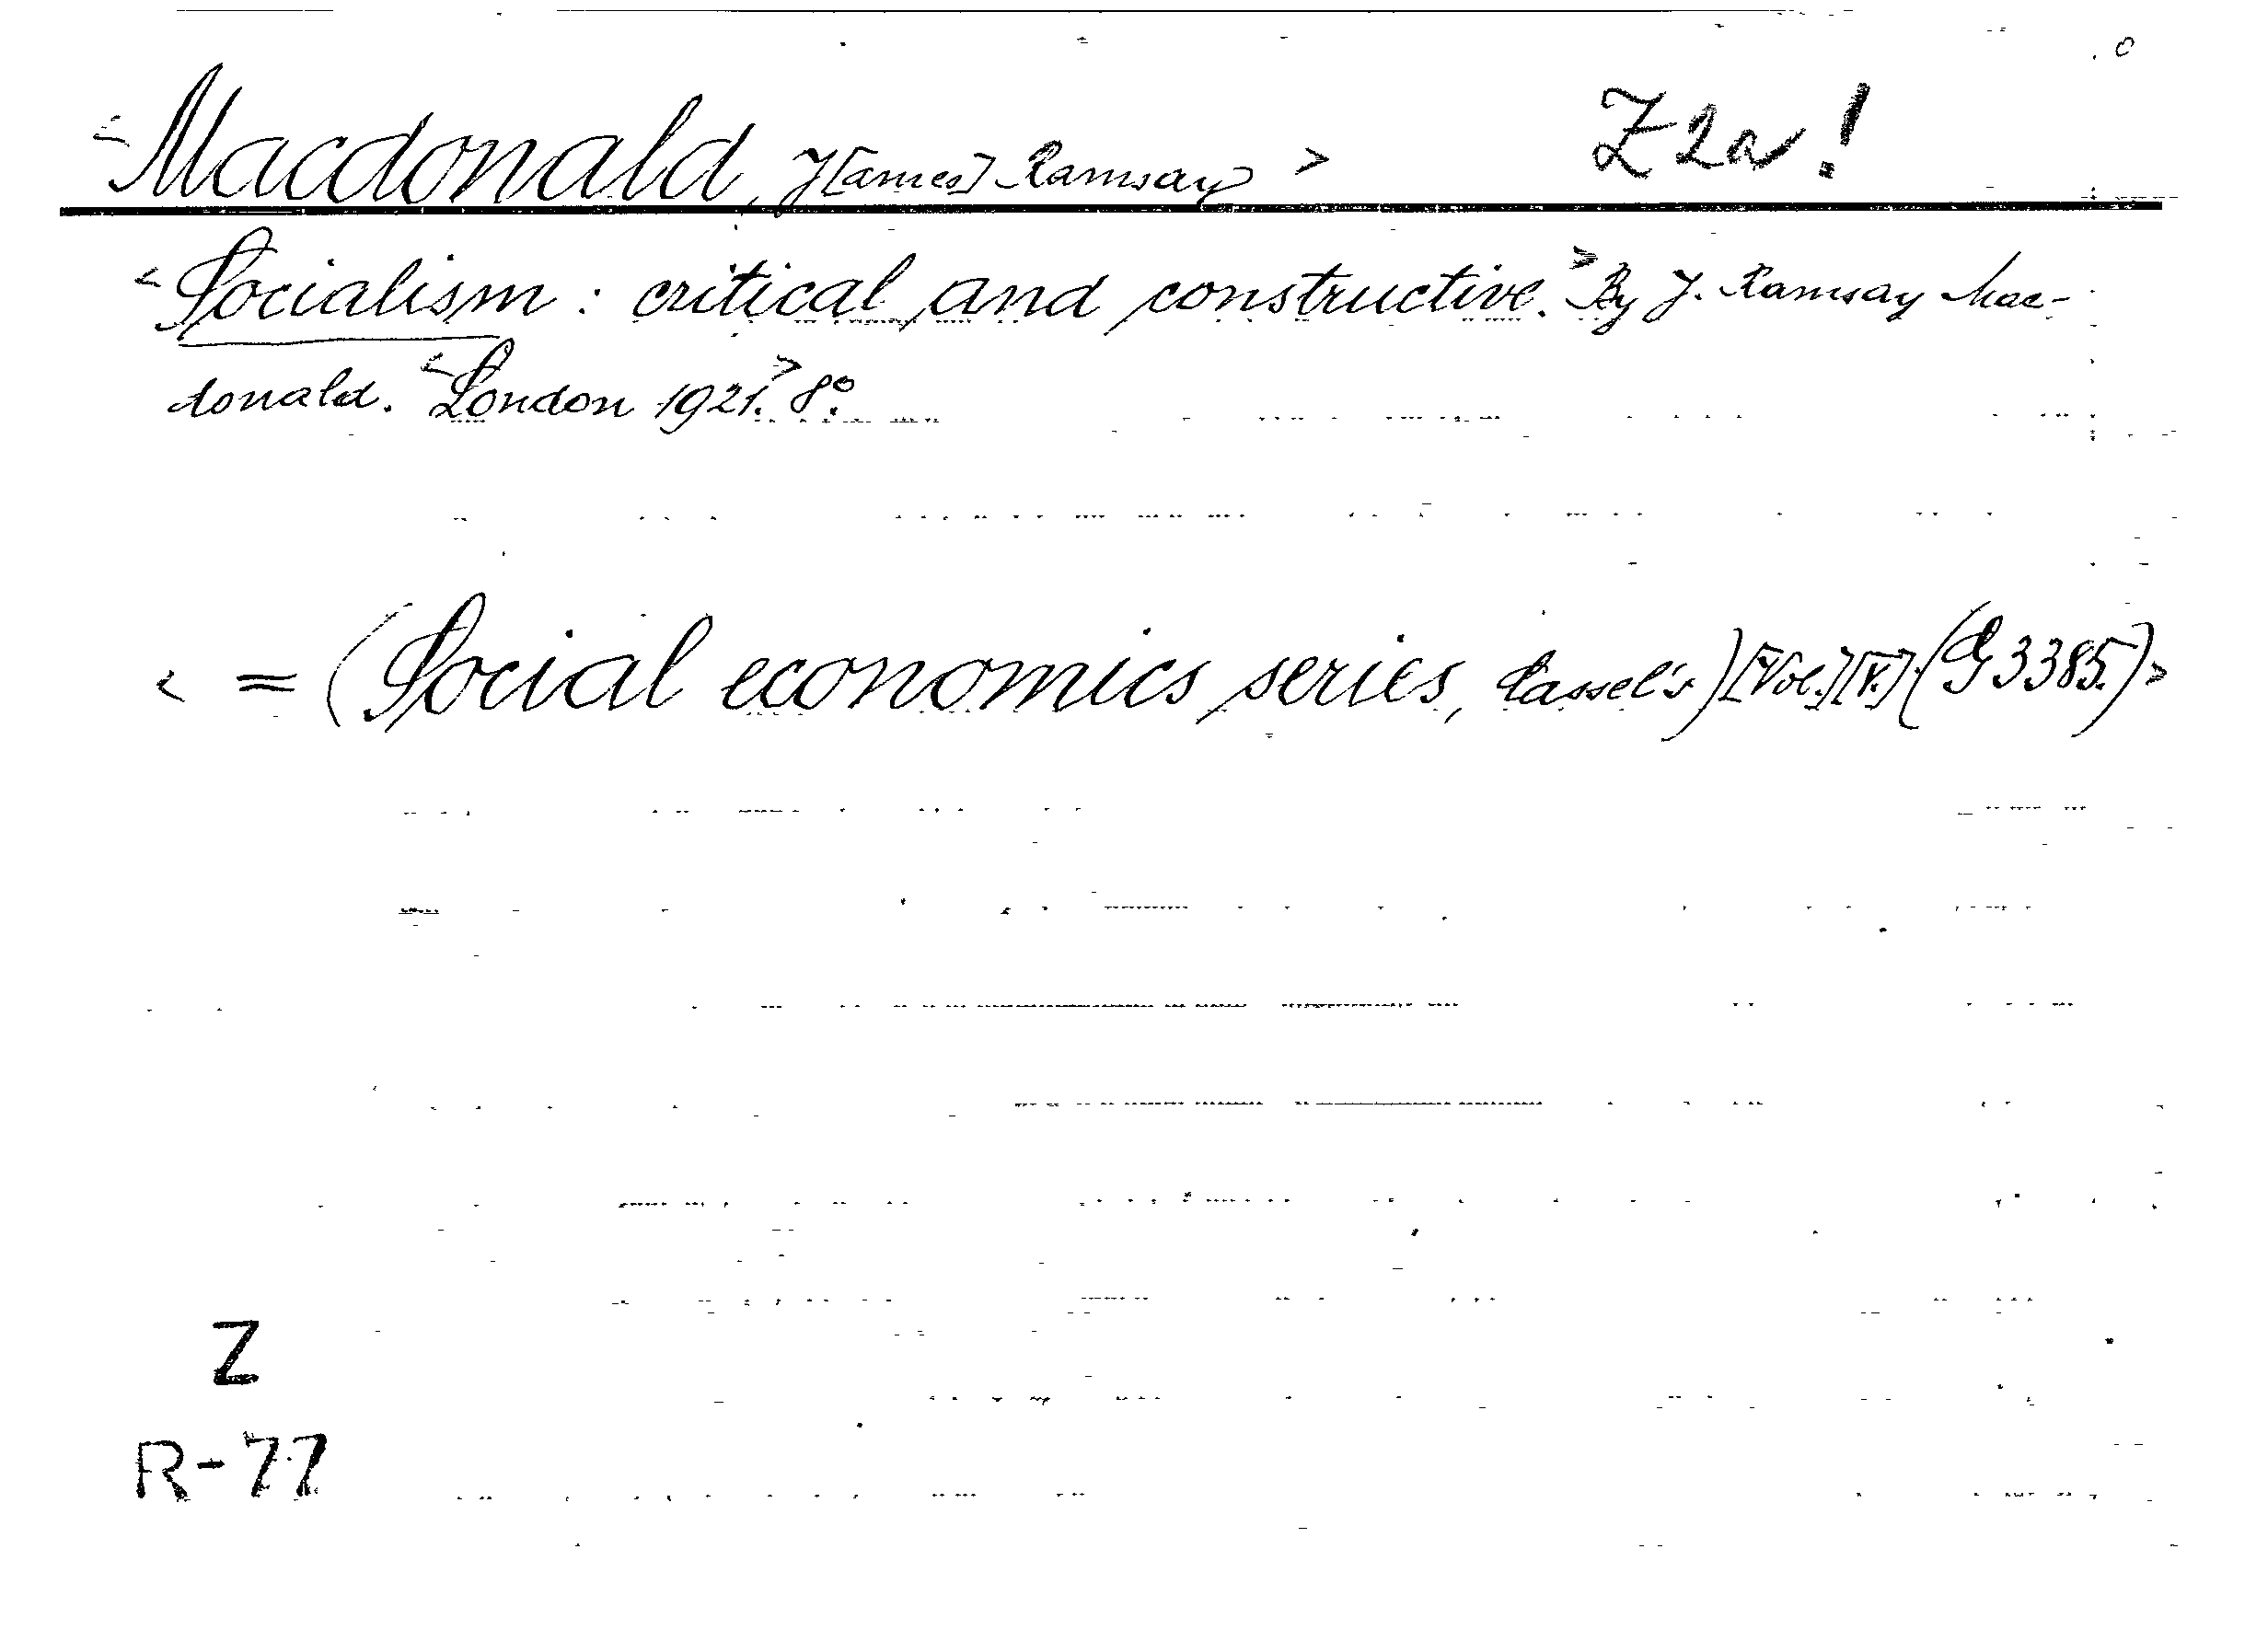 <Macdonald, J[ames] Ramsay> Z2a!
<Socialism: critical and constructive.> By J. Ramsay Mac-
donald. <London 1921.> 8°.
< = (Social economics series, Cassel's) [Vol.] [V.] (G 3385.)>
Z
R-77